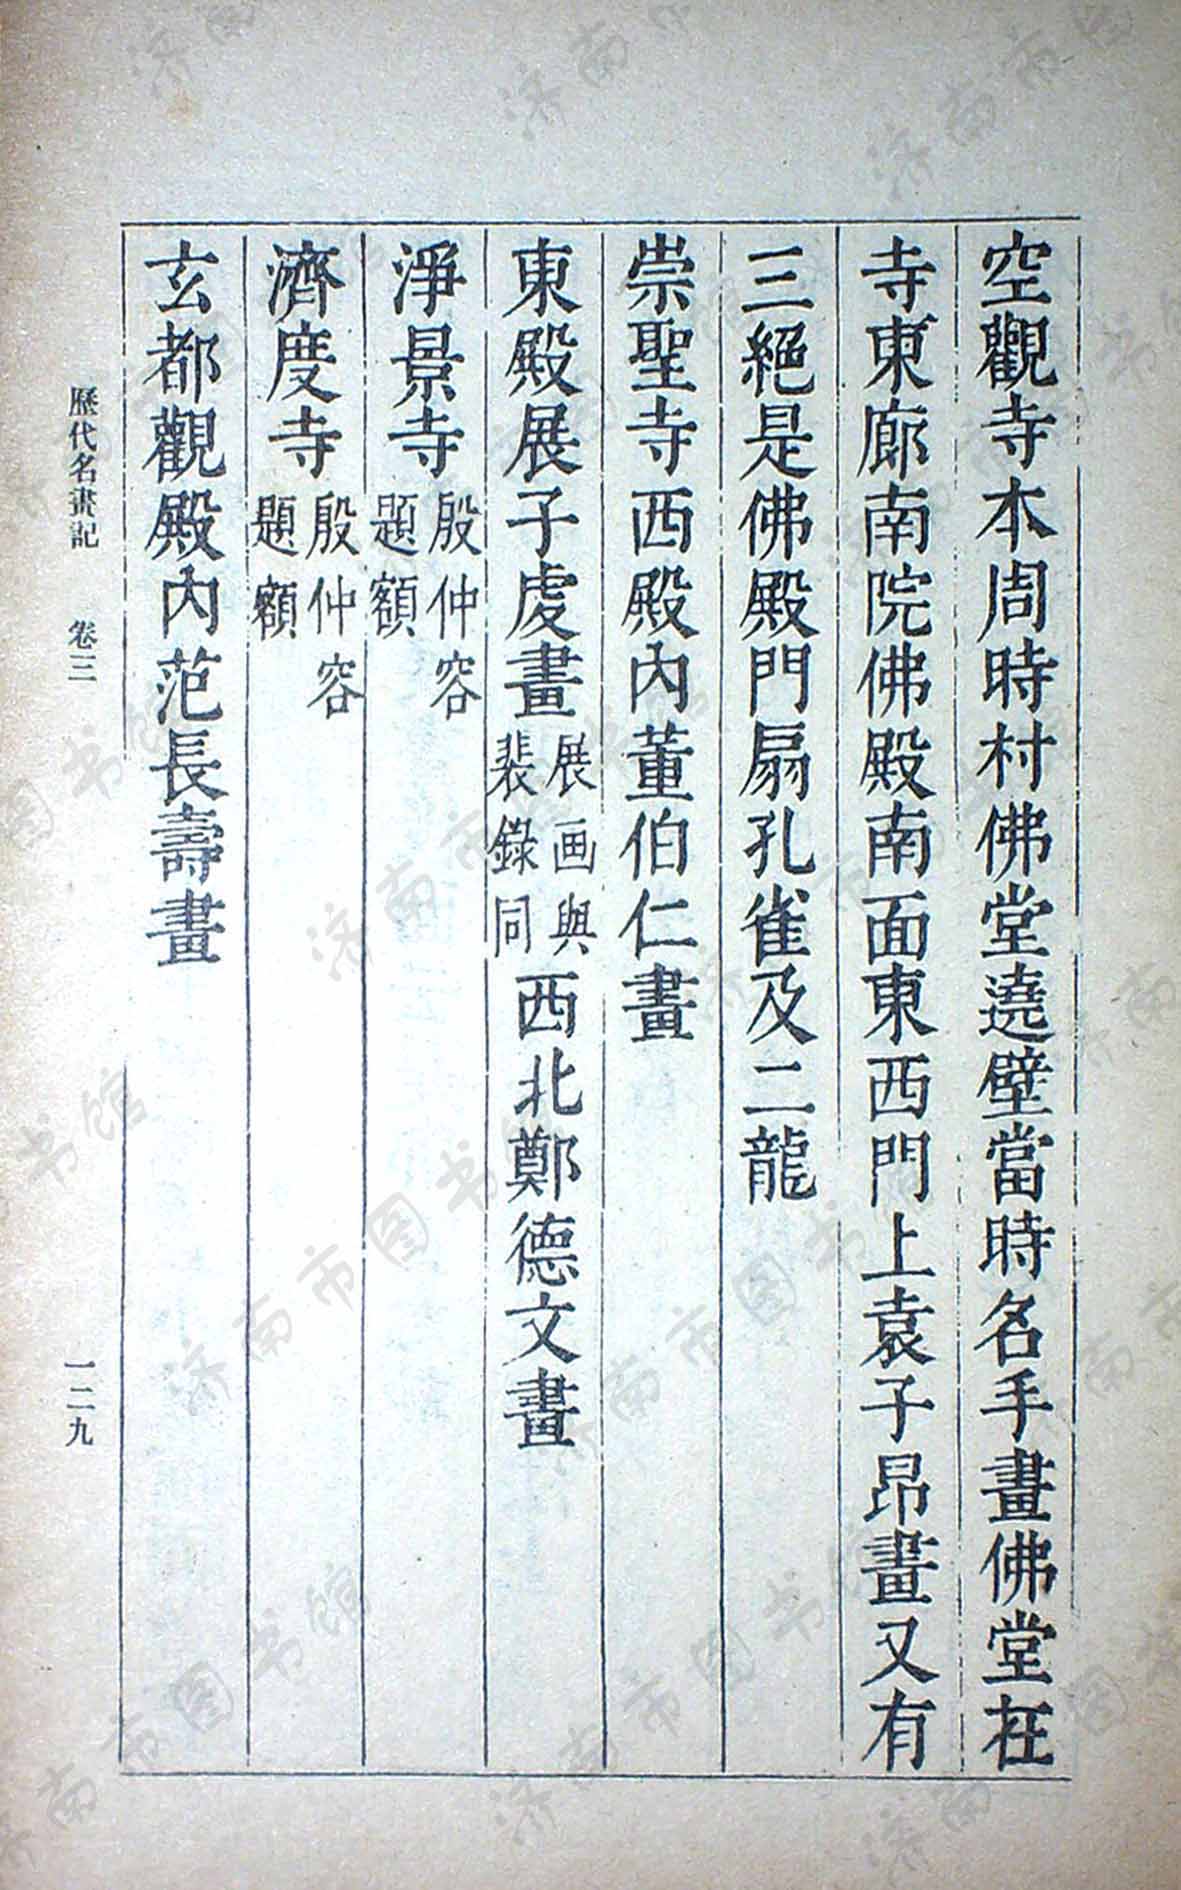 空觀寺本周時村佛堂遶壁當時名手畫佛堂在
寺東廊南院佛殿南面東西門上袁子昂畫又有
三絕是佛殿門扇孔雀及二龍
崇聖寺西殿內董伯仁畫
東殿展子虔畫展画與裴錄同西北鄭德文畫
淨景寺殷仲容題額
濟度寺殷仲容題額
玄都觀殿內范長壽畫
歷代名畫記 卷三 一二九
济南市图书馆